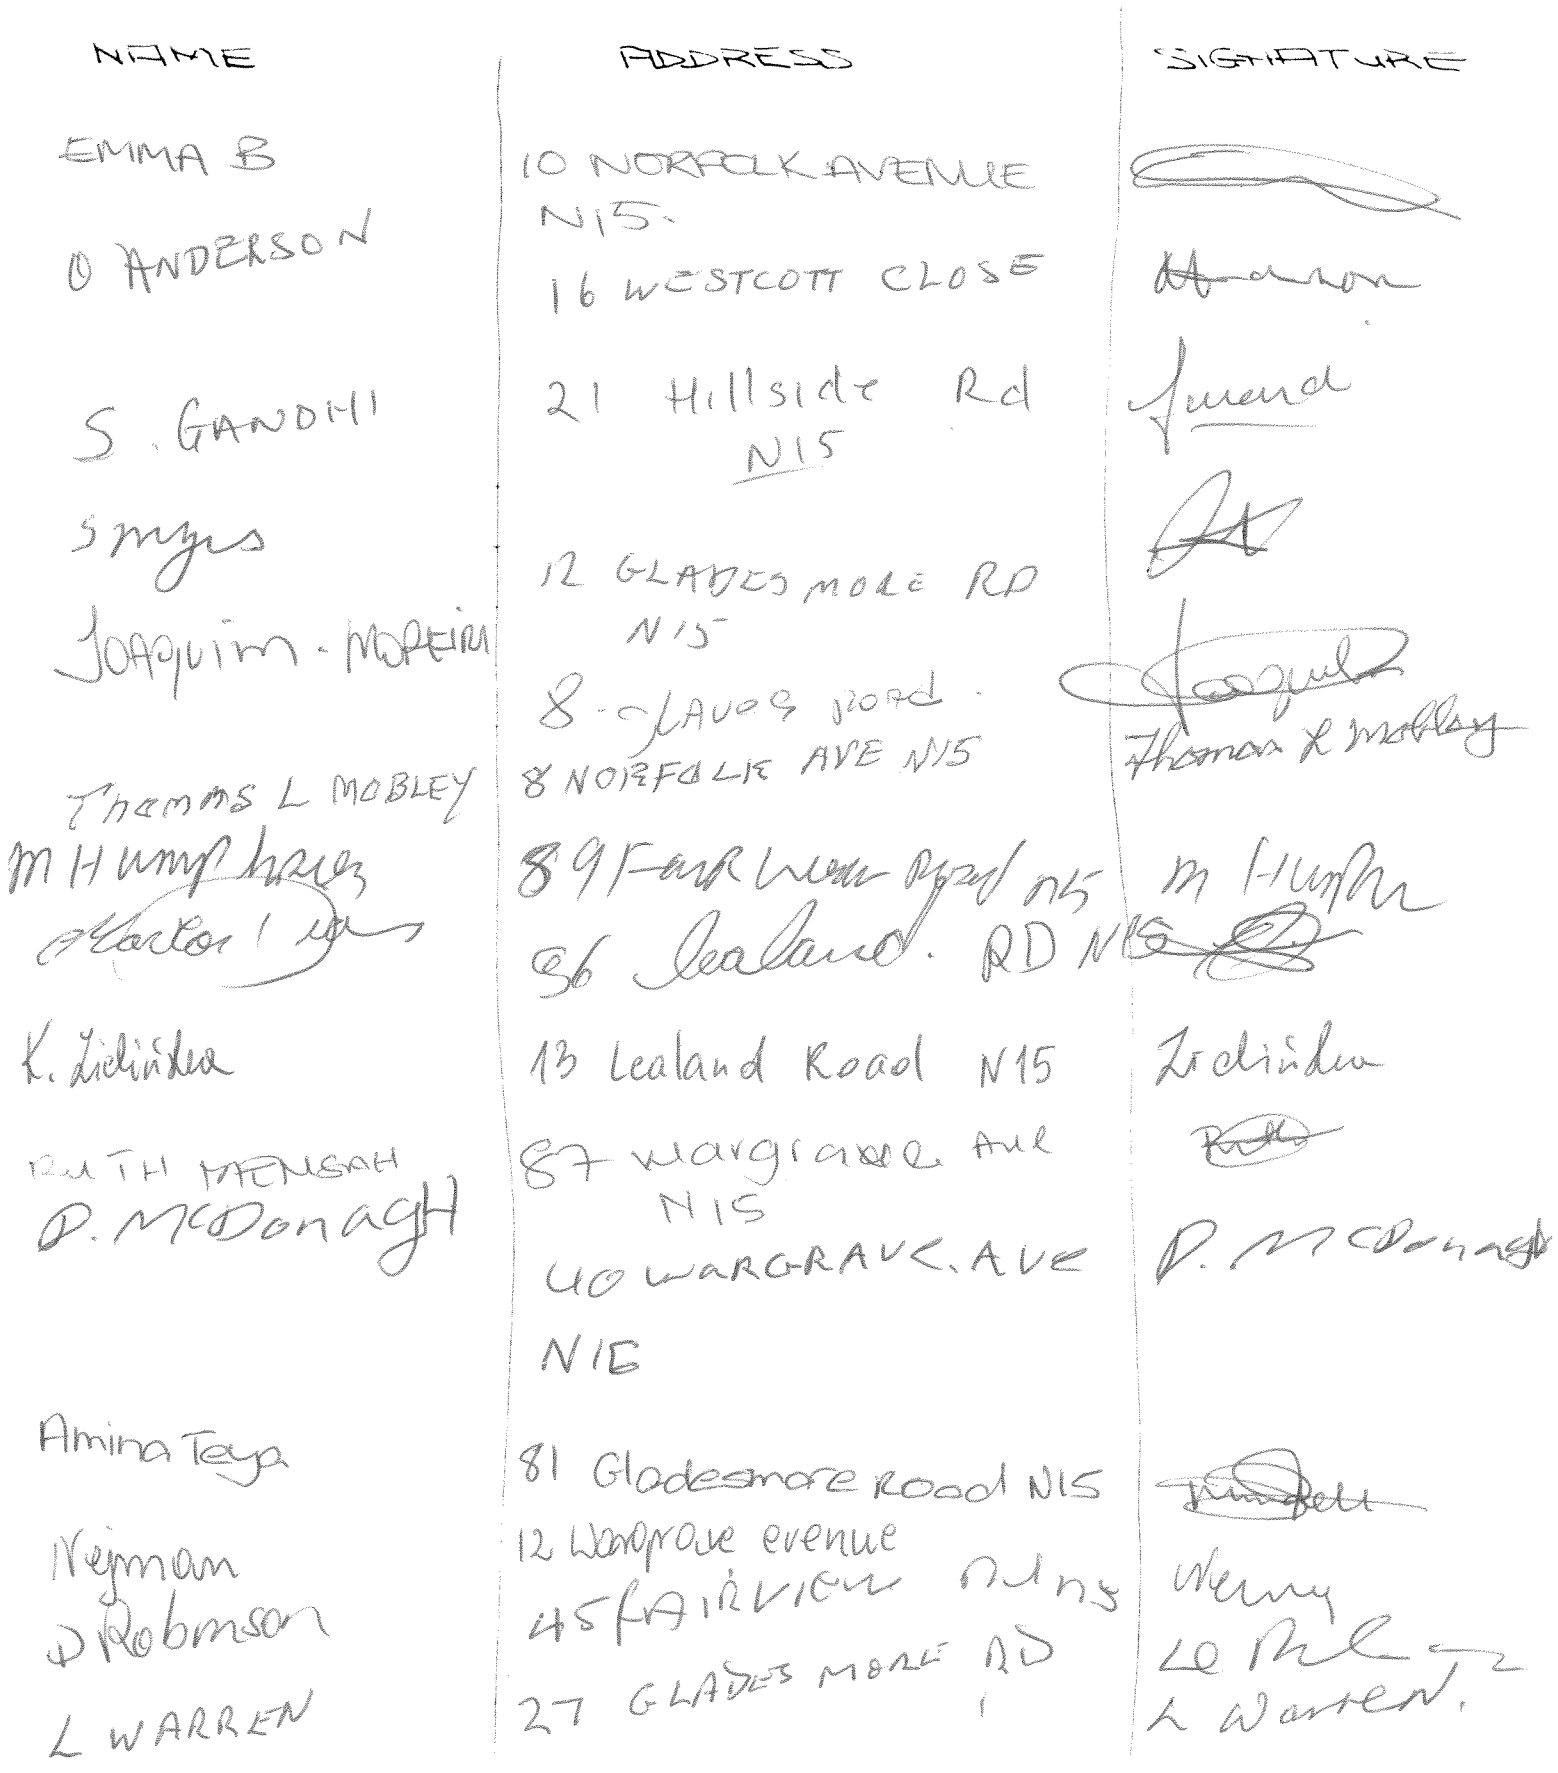 NAME ADDRESS SIGNATURE
EMMA B 10 NORFOLK AVENUE
N15.
O ANDERSON 16 WESTCOTT CLOSE
S. GANDHI 21 Hillside Rd
N15
S 12 GLADESMORE RD
N15
JOAQUIM - MOREIRA 8 - ROAD.
Thomas L MOBLEY 8 NORFOLK AVE N15 Thomas L Mobley
M Humphries 89 Road N15 M
96 Lealand. RD N15
K. 13 Lealand Road N15
RUTH MENSAH 87 Wargrave Ave Ruth
N15
D. McDonagH 40 WARGRAVE. AVE D. McDonagh
N15
Amina Teya 81 Gladesmore Road N15
Nejman 12 Wargrave evenue
D Robinson 45 FAIRVIEW Rd N15
L WARREN 27 GLADESMORE RD L WarreN.